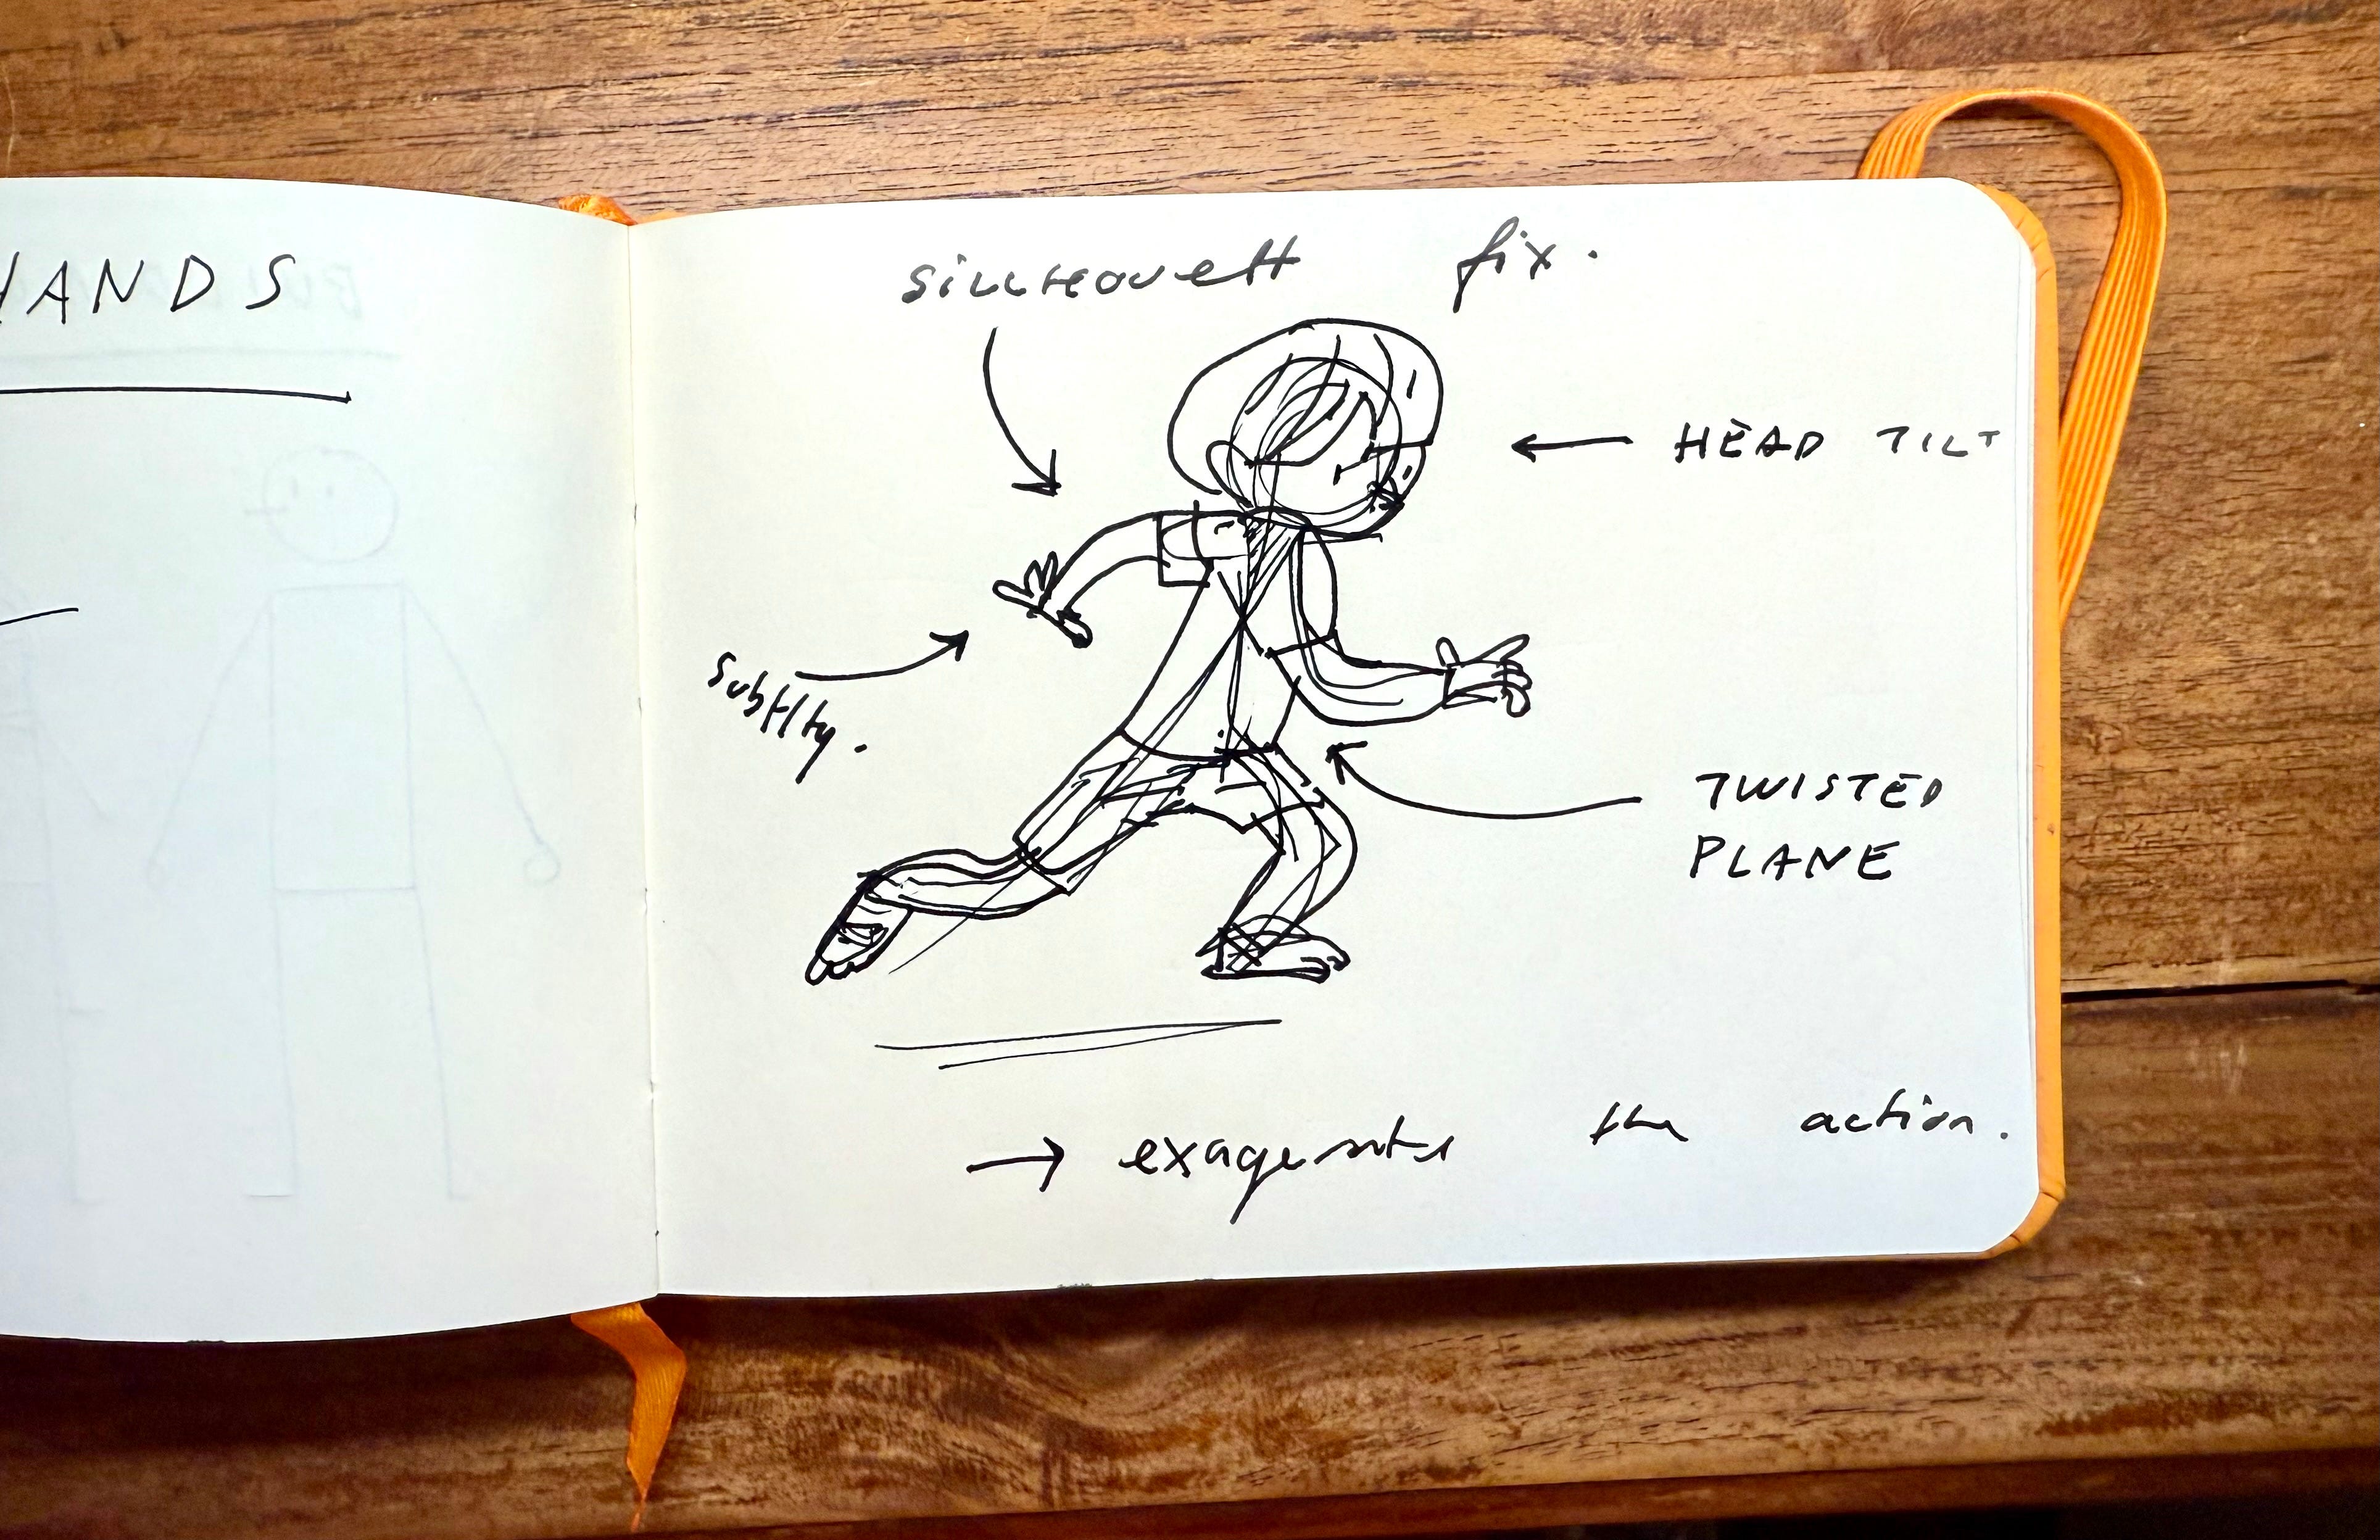 HANDS
sillhouett fix.
HEAD TILT
subtlty.
TWISTED
PLANE
→ exagerate the action.